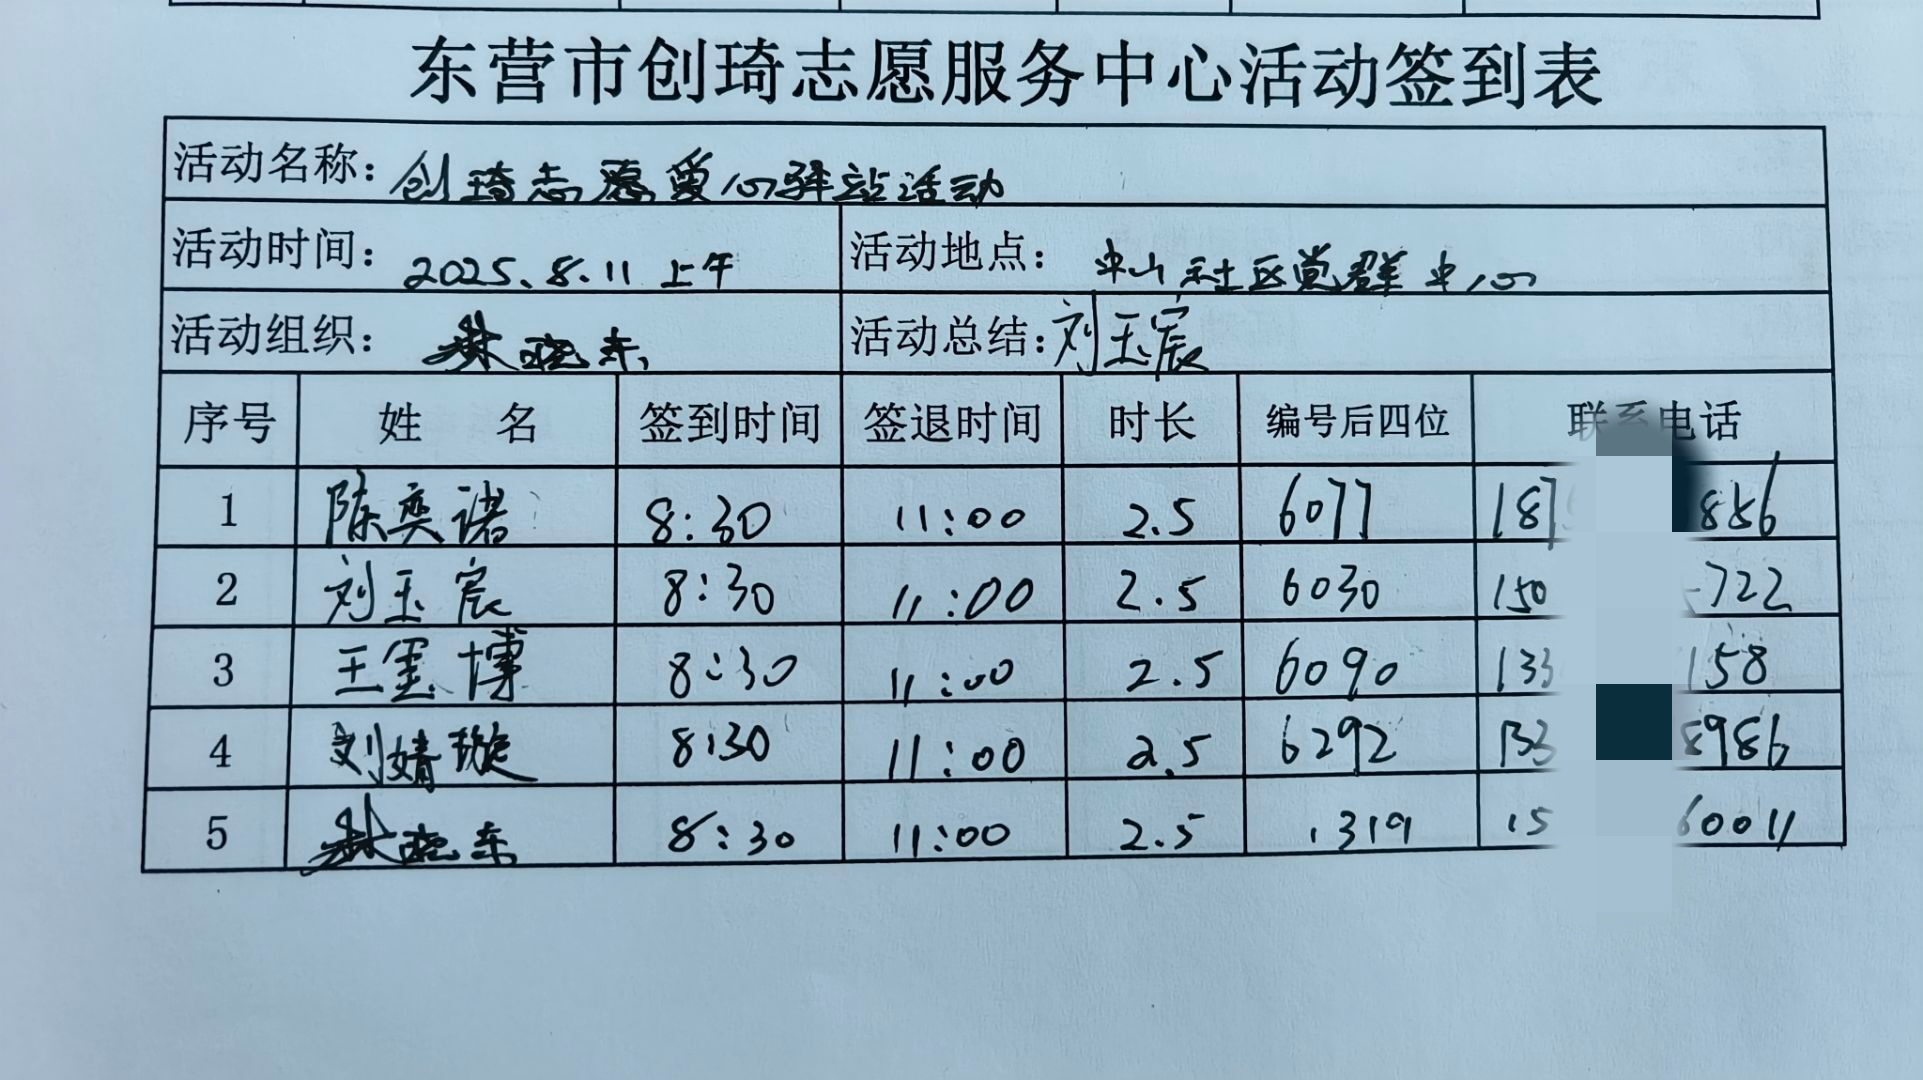 东营市创琦志愿服务中心活动签到表
活动名称：创琦志愿爱心驿站活动
活动时间：2025.8.11 上午 活动地点：中山社区党群中心
活动组织：林晓东 活动总结：刘玉宸
序号 姓名 签到时间 签退时间 时长 编号后四位 联系电话
1 陈奕诺 8:30 11:00 2.5 6077 187 886
2 刘玉宸 8:30 11:00 2.5 6030 150 722
3 王玺博 8:30 11:00 2.5 6090 133 158
4 刘婧璇 8:30 11:00 2.5 6292 133 8986
5 林晓东 8:30 11:00 2.5 1319 15 60011